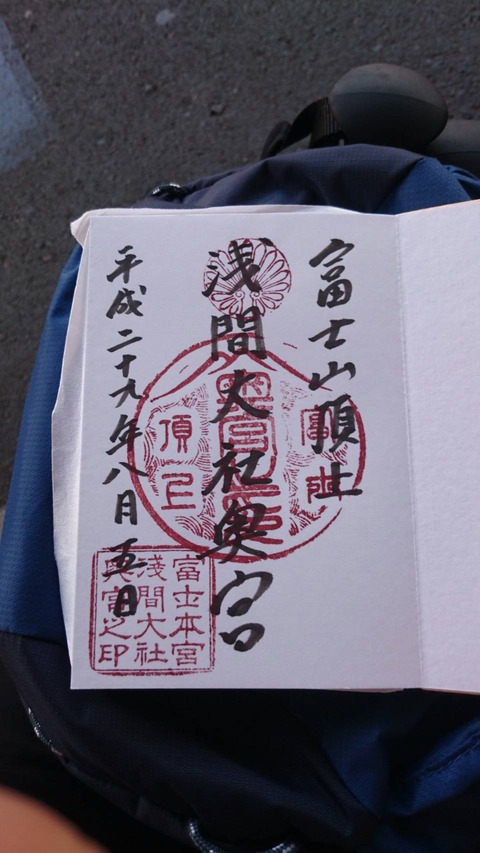 富士山頂上
浅間大社奥宮
平成二十九年八月五日
頂上
奥宮之印
富士本宮
浅間大社
奥宮之印